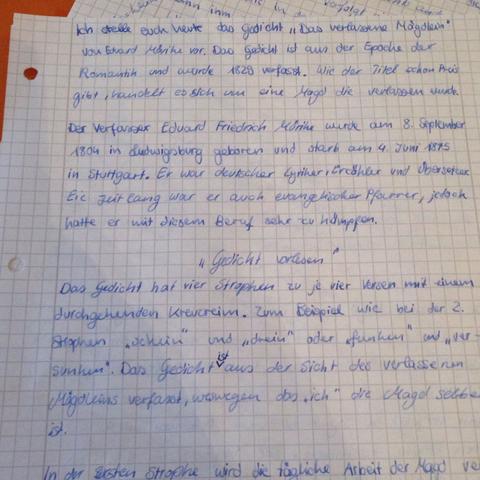 Ich stelle euch heute das Gedicht „Das verlassene Mägdlein"
von Eduard Mörike vor. Das Gedicht ist aus der Epoche der
Romantik und wurde 1829 verfasst. Wie der Titel schon Preis
gibt, handelt es sich um eine Magd die verlassen wurde.
Der Verfasser Eduard Friedrich Mörike wurde am 8. September
1804 in Ludwigsburg geboren und starb am 4. Juni 1875
in Stuttgart. Er war deutscher Lyriker, Erzähler und Übersetzer.
Eie Zeit lang war er auch evangelischer Pfarrer, jedoch
hatte er mit diesem Beruf sehr zu kämpfen.
„Gedicht vorlesen"
Das Gedicht hat vier Strophen zu je vier Versen mit einem
durchgehenden Kreuzreim. Zum Beispiel wie bei der 2.
Strophen „schein" und „drein" oder „funken" und „ver-
sunken". Das Gedicht ist aus der Sicht des verlassenen
Mägdleins verfasst, weswegen das „ich" die Magd selber
ist.
In der ersten Strophe wird die tägliche Arbeit der Magd